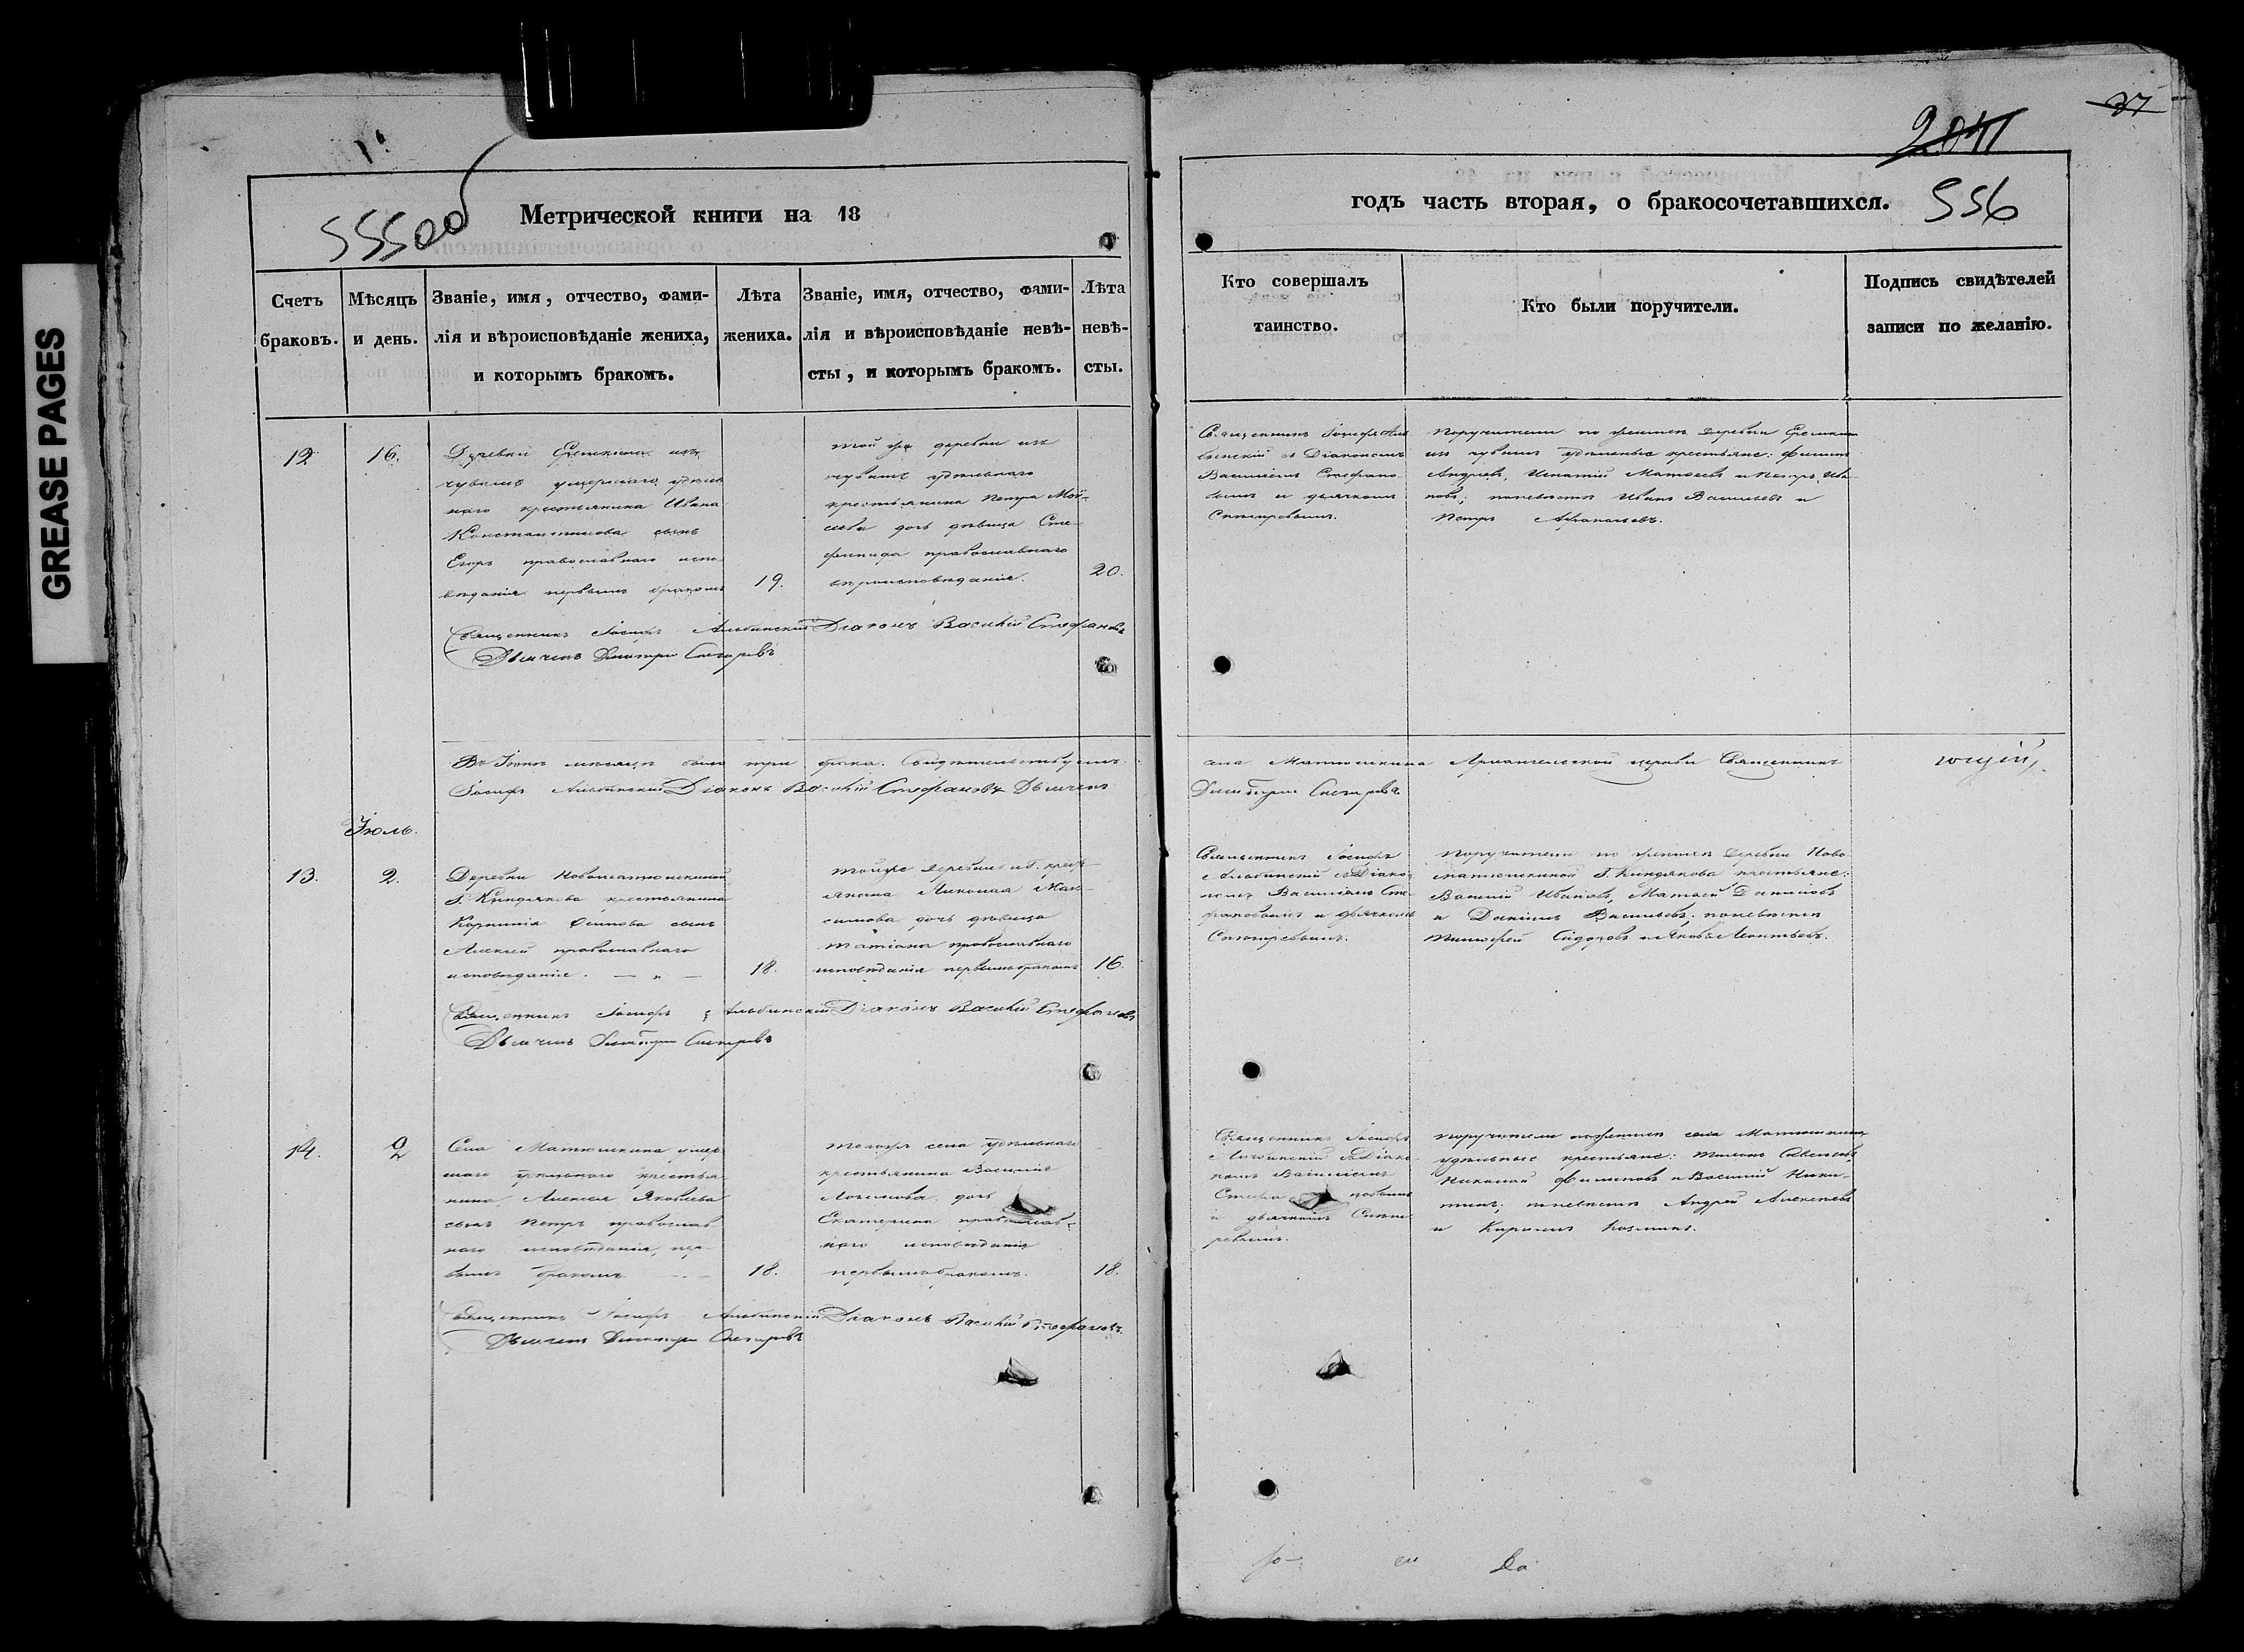 GREASE PAGES
555об
Метрической книги на 18
Счетъ браковъ.
Мѣсяцъ и день.
Званіе, имя, отчество, фами-
лія и вѣроисповѣданіе жениха,
и которымъ бракомъ.
Лѣта жениха.
Званіе, имя, отчество, фами-
лія и вѣроисповѣданіе невѣ-
сты, и которымъ бракомъ.
Лѣта невѣ-
сты.
12
16.
Деревни
чувашъ умершаго удѣль
наго крестьянина Ивана
Константинова сынъ
Егоръ православнаго испо-
вѣданія первымъ бракомъ
19.
той же деревни изъ
чувашъ удѣльнаго
крестьянина Петра Мои-
сеева дочь дѣвица Сте-
фанида православнаго
вѣроисповѣданія.
20.
Священникъ Іосифъ Альбинскій Діаконъ Василій Стефановъ
Дьячекъ Дмитрій Снегиревъ
Въ Іюнѣ мѣсяцѣ было три брака. Свидѣтельствуемъ
Іосифъ Альбинскій Діаконъ Василій Стефановъ Дьячекъ
Іюль.
13.
2.
Деревни Новоматюшкиной
Г. Киндякова крестьянина
Корнилія Осипова сынъ
Алексей православнаго
исповѣданіе. — „ —
18.
тойже деревни и г. крест-
янина Николая Мак-
симова дочь дѣвица
Татіана православнаго
исповѣданія первымъ бракомъ
16.
Священникъ Іосифъ Альбинскій Діаконъ Василій Стефановъ
Дьячекъ Дмитрій Снегиревъ
14.
2
Села Матюшкина умер
шаго удѣльнаго крестья
нина Алексея Яковлева
сынъ Петръ православ
наго исповѣданія, пер-
вымъ бракомъ
18.
тогожъ села удѣльнаго
крестьянина Василія
Логинова дочь
Екатерина православ-
наго исповѣданія
первымъ бракомъ.
18.
Священникъ Іосифъ Альбинскій Діаконъ Василій Стефановъ.
Дьячекъ Дмитрій Снегиревъ
37
2041
556
годъ часть вторая, о бракосочетавшихся.
Кто совершалъ таинство.
Кто были поручители.
Подпись свидѣтелей
записи по желанію.
Священникъ Іосифъ Аль
бинскій съ Діакономъ
Василіемъ Стефано-
вымъ и дьячкомъ
Снегиревымъ.
Поручители по женихѣ деревни
изъ чувашъ удѣльные крестьяне: Филипъ
Андреевъ, Игнатій Матвеевъ и Петръ Ива-
новъ; по невѣстѣ Иванъ Васильевъ и
Петръ Афанасьевъ.
села Матюшкина Архангельской церкви Священникъ
Дмитрій Снегиревъ
Священникъ Іосифъ
Альбинскій съ Діако-
номъ Василіемъ Сте-
фановымъ и дьячкомъ
Снегиревымъ.
Поручители по женихѣ деревни Ново
матюшкиной Г. Киндякова крестьяне:
Василій Ивановъ, Матвей Даниловъ
и Даніилъ Васильевъ; по невѣстѣ
Тимофей Сидоровъ и Яковъ Леонтьевъ.
Священникъ Іосифъ
Альбинскій съ Діако-
номъ Василіемъ
Стефановымъ
и дьячкомъ Снеги-
ревымъ.
Поручители по женихѣ села Матюшкина
удѣльные крестьяне:
Николай Филиповъ и Василій Ники-
тинъ; по невѣстѣ Андрей Алексеевъ
и Кирилъ Козминъ.